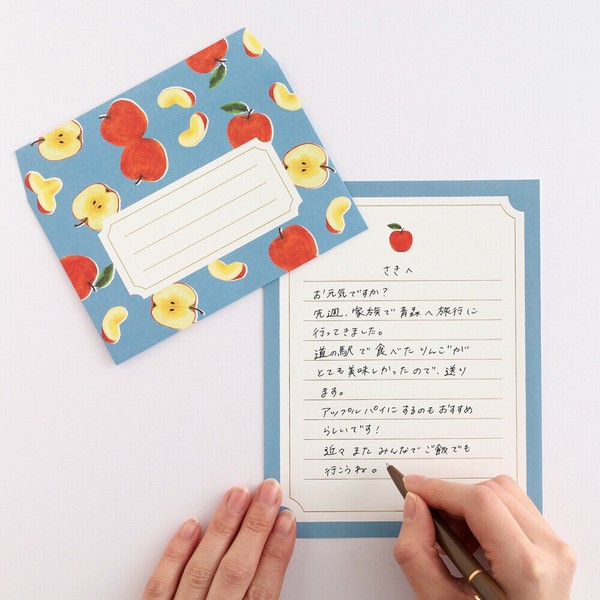 さきへ
お元気ですか?
先週、家族で青森へ旅行に
行ってきました。
道の駅で食べたりんごが
とても美味しかったので、送り
ます。
アップルパイにするのもおすすめ
らしいです!
近々またみんなでご飯でも
行こうね。